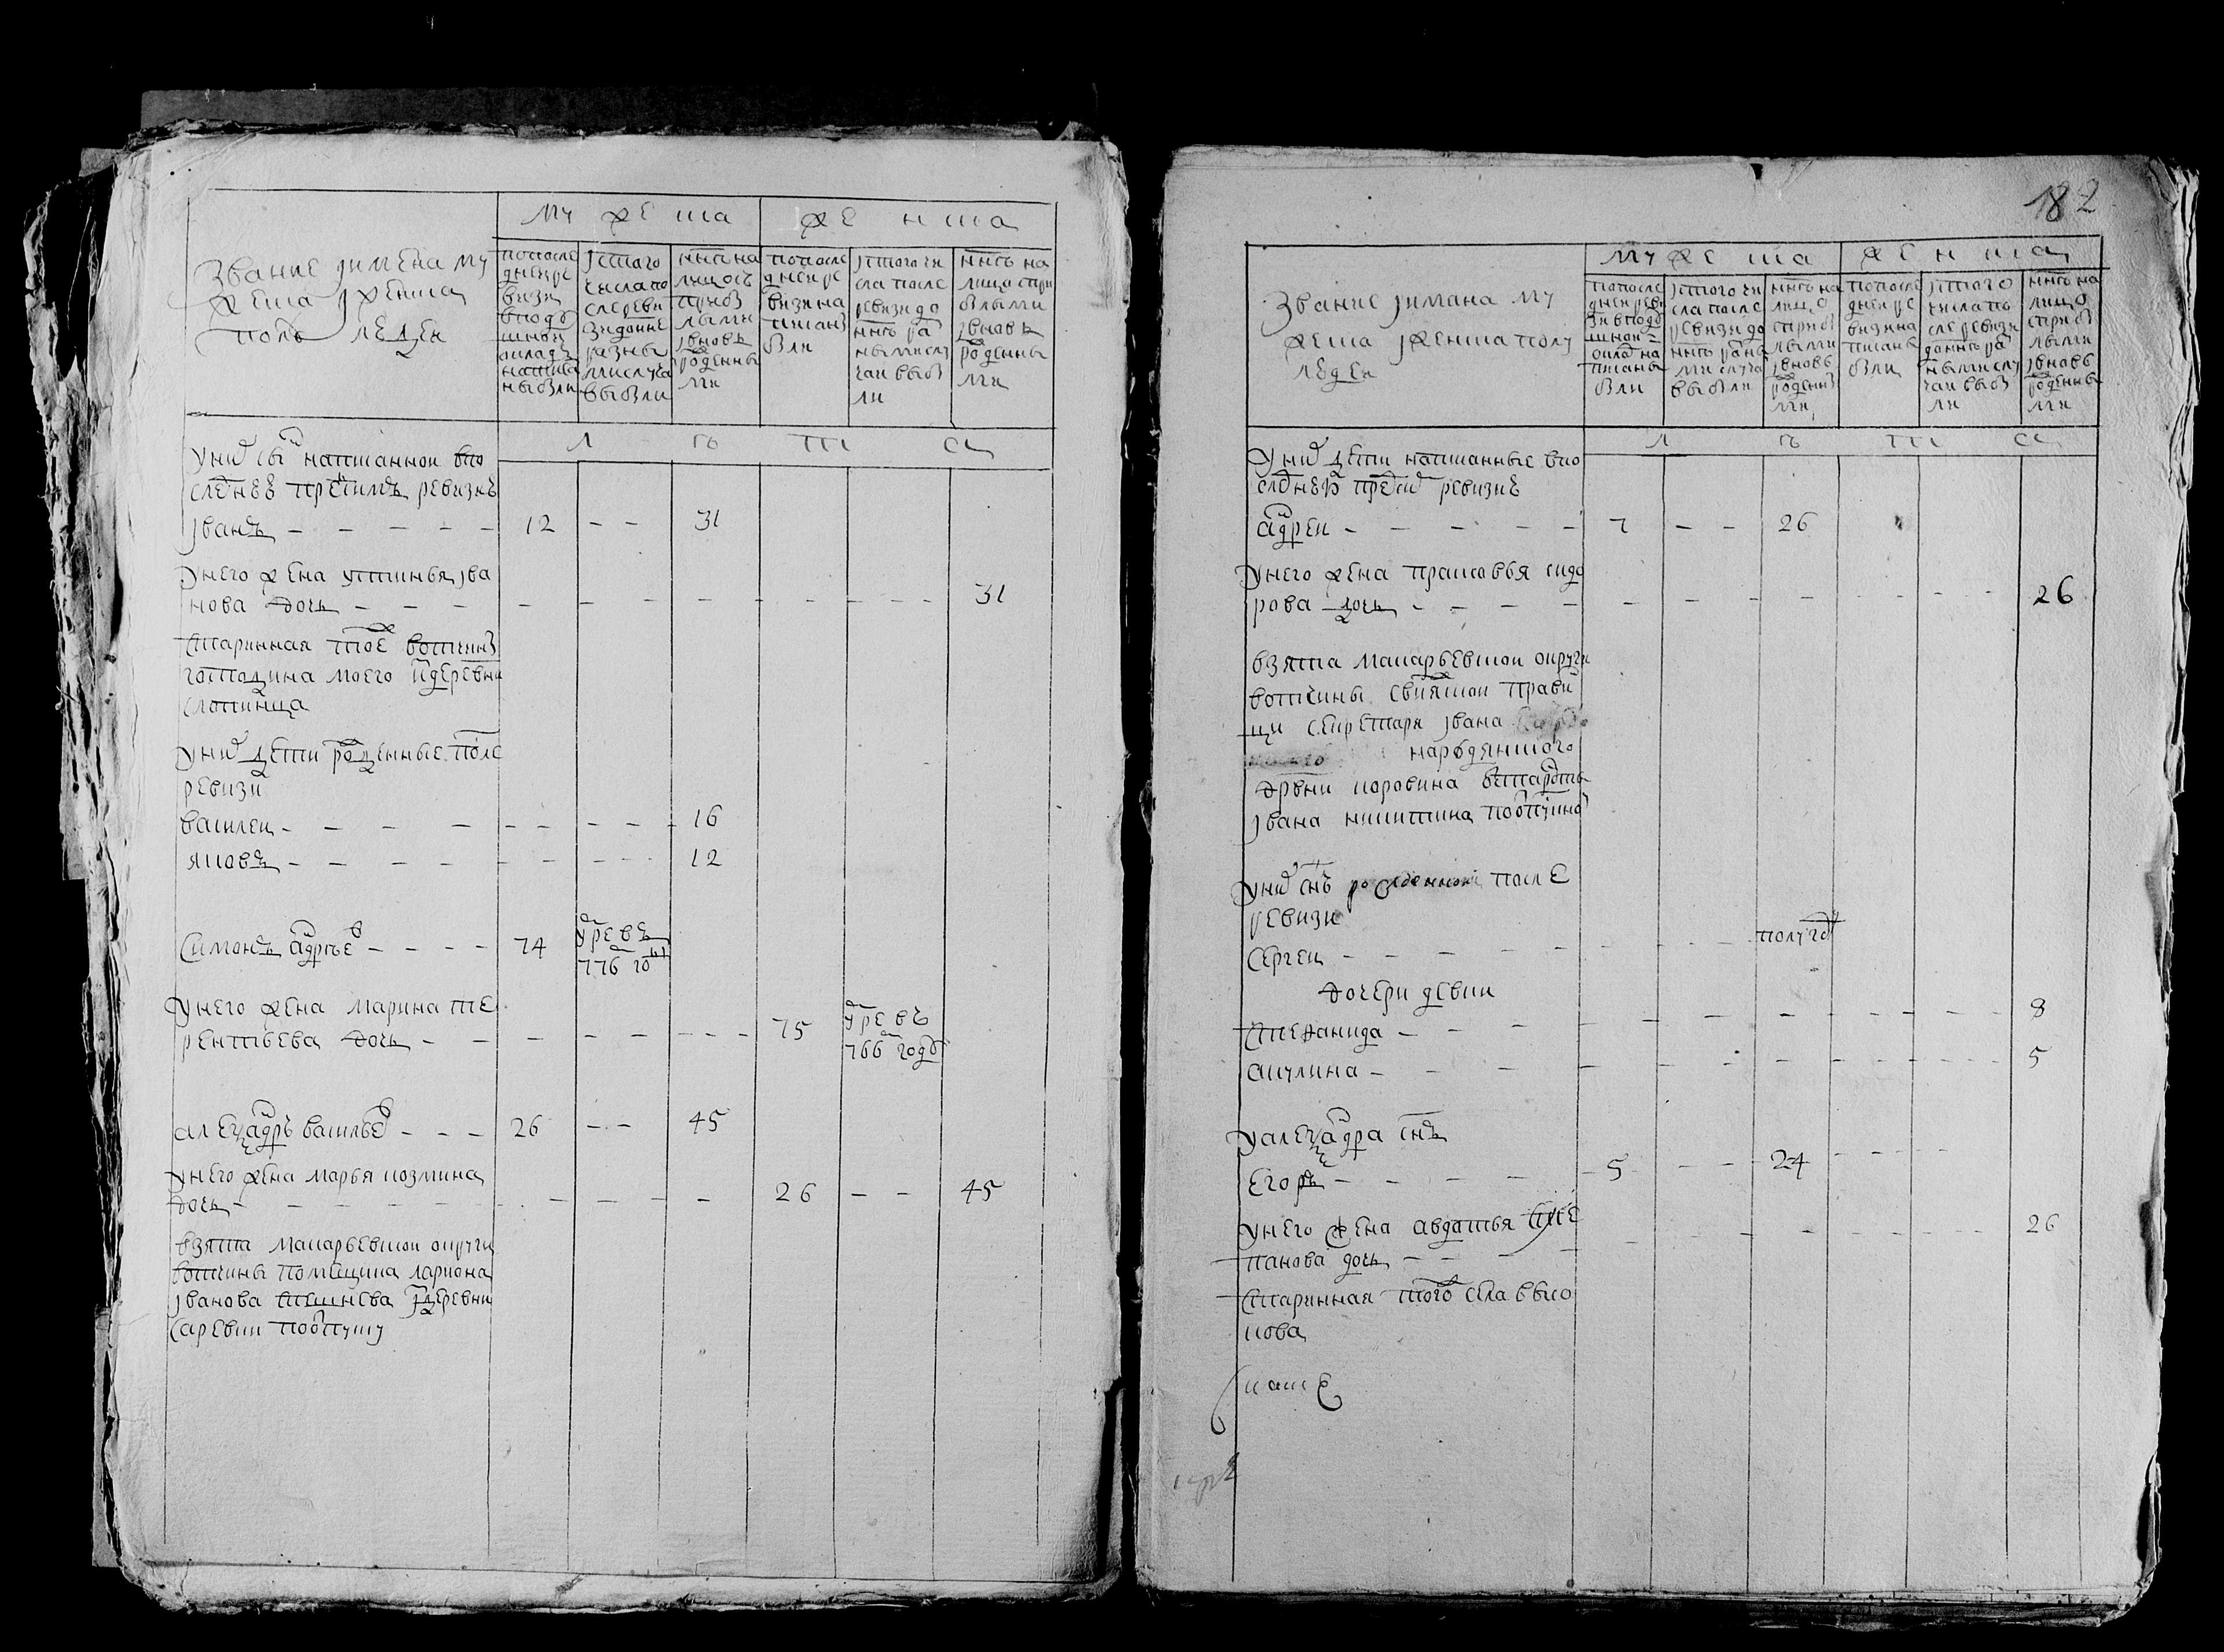 Звание и имена му
жеска и женска
полѣ людеи
Му же ска
же н ска
по после
днеи ре
визи
в подꙋ
шнои
окладъ
написа
ны были
ис того
числа по
сле реви
зи до нне
разны
ми случа
выбыли
ннѣ на
лицо съ
прибы
лыми
и вновь
рожденны
ми
по после
днеи ре
визи на
писаны
были
ис того чи
сла после
ревизи до
ннѣ ра
ными слу
чаи выбы
ли
ннѣ на
лицо с при
былыми
и вновь
рожденны
ми
л ѣ т а
у них сын написаннои в по
следнеѣ пред сим ревизиѣ
Иванъ - - - - - 12 - - 31
у него жена Устинья Ива
нова дочь - - - - - - - - 31
старинная тое ж вотчины
господина моего из деревни
Слопинца
у них дети рожденные после
ревизи
Василеи - - - - - - - - 16
Яковъ - - - - - - - - 12
Симонъ Андрѣев - - - - 74 умре въ
776 год
у него жена Марина Те
рентьева дочь - - - - - - - 75 умре въ
766 годꙋ
Александръ Васильев - - - 26 - - 45
у него жена Марья Козмина
дочь - - - - - - - - 26 - - 45
взята Макарьевскои округи
вотчины помещика Лариона
Иванова из деревни
Саревки по отпуску
182
Звание и имяна му
жеска и женска полу
людеи
Му же ска
же н ска
по после
днеи реви
зи в подꙋ
шном
окладе на
писаны
были
ис того чи
сла после
ревизи до
ннѣ разны
ми случа
выбыли
ннѣ на
лицо
с прибы
лыми
и вновь
рожденны
ми
по после
днеи ре
визи на
писаны
были
ис того
числа по
сле ревизи
до ннѣ ра
ными слу
чаи выбы
ли
ннѣ на
лицо
с прибы
лыми
и вновь
рожденны
ми
л ѣ т а
у них дети написанные в по
следнѣи пред сим ревизиѣ
Андреи - - - - - 7 - - 26
у него жена Прасковья Сидо
рова дочь - - - - - - - - 26
взята Макарьевскои округи
вотчины
секретаря Ивана
деревни Коровина
Ивана Никитина по отпускнои
у них снъ рожденнои после
ревизи
Сергеи - - - - - - - полугоду
дочери девки
Степанида - - - - - - - - 8
Акулина - - - - - - - - 5
у Александра снъ
Егоръ - - - - 5 - - - 24 - - - -
у него жена Авдотья Сте
панова дочь - - - - - - - 26
старинная того ж села Высо
кова